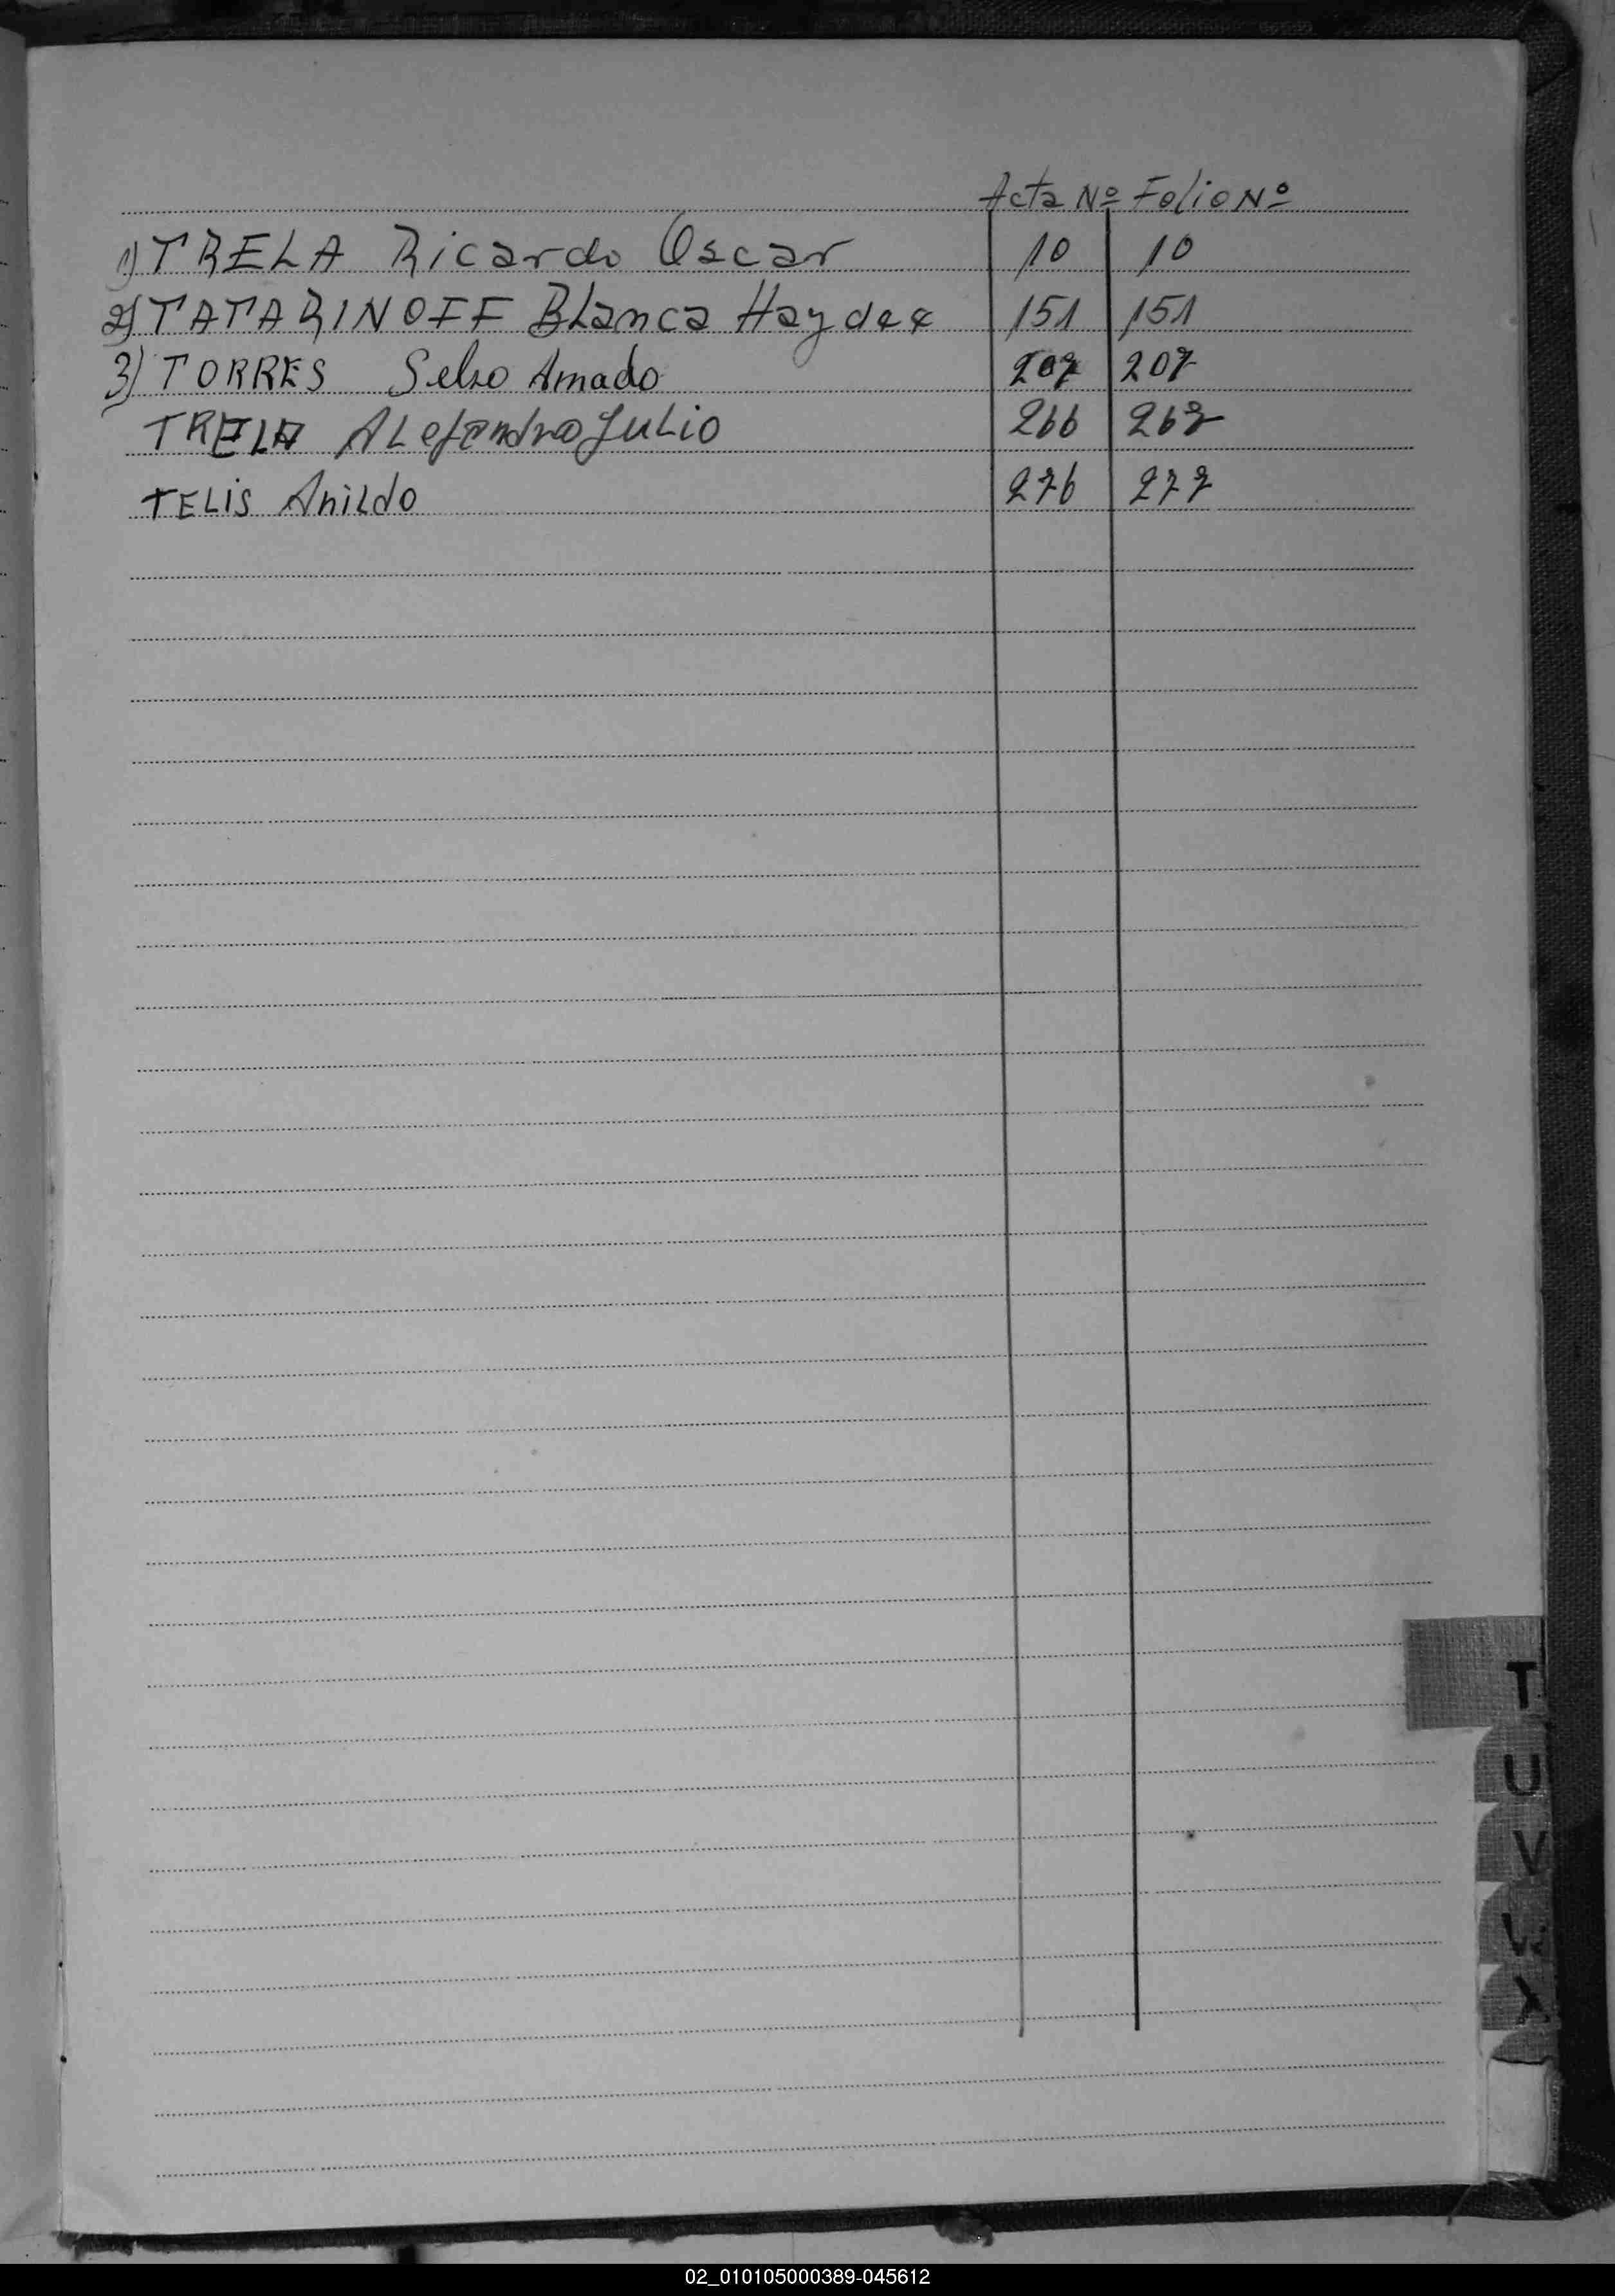 Acta Nº Folio Nº
1) TRELA Ricardo Oscar 10 10
2) TATARINOFF BLanca Haydee 151 151
3) TORRES Selso Amado 207 207
TRELA ALejandro JuLio 266 267
TELiS AniLdo 276 277
T
U
V
W
X
02_010105000389-045612